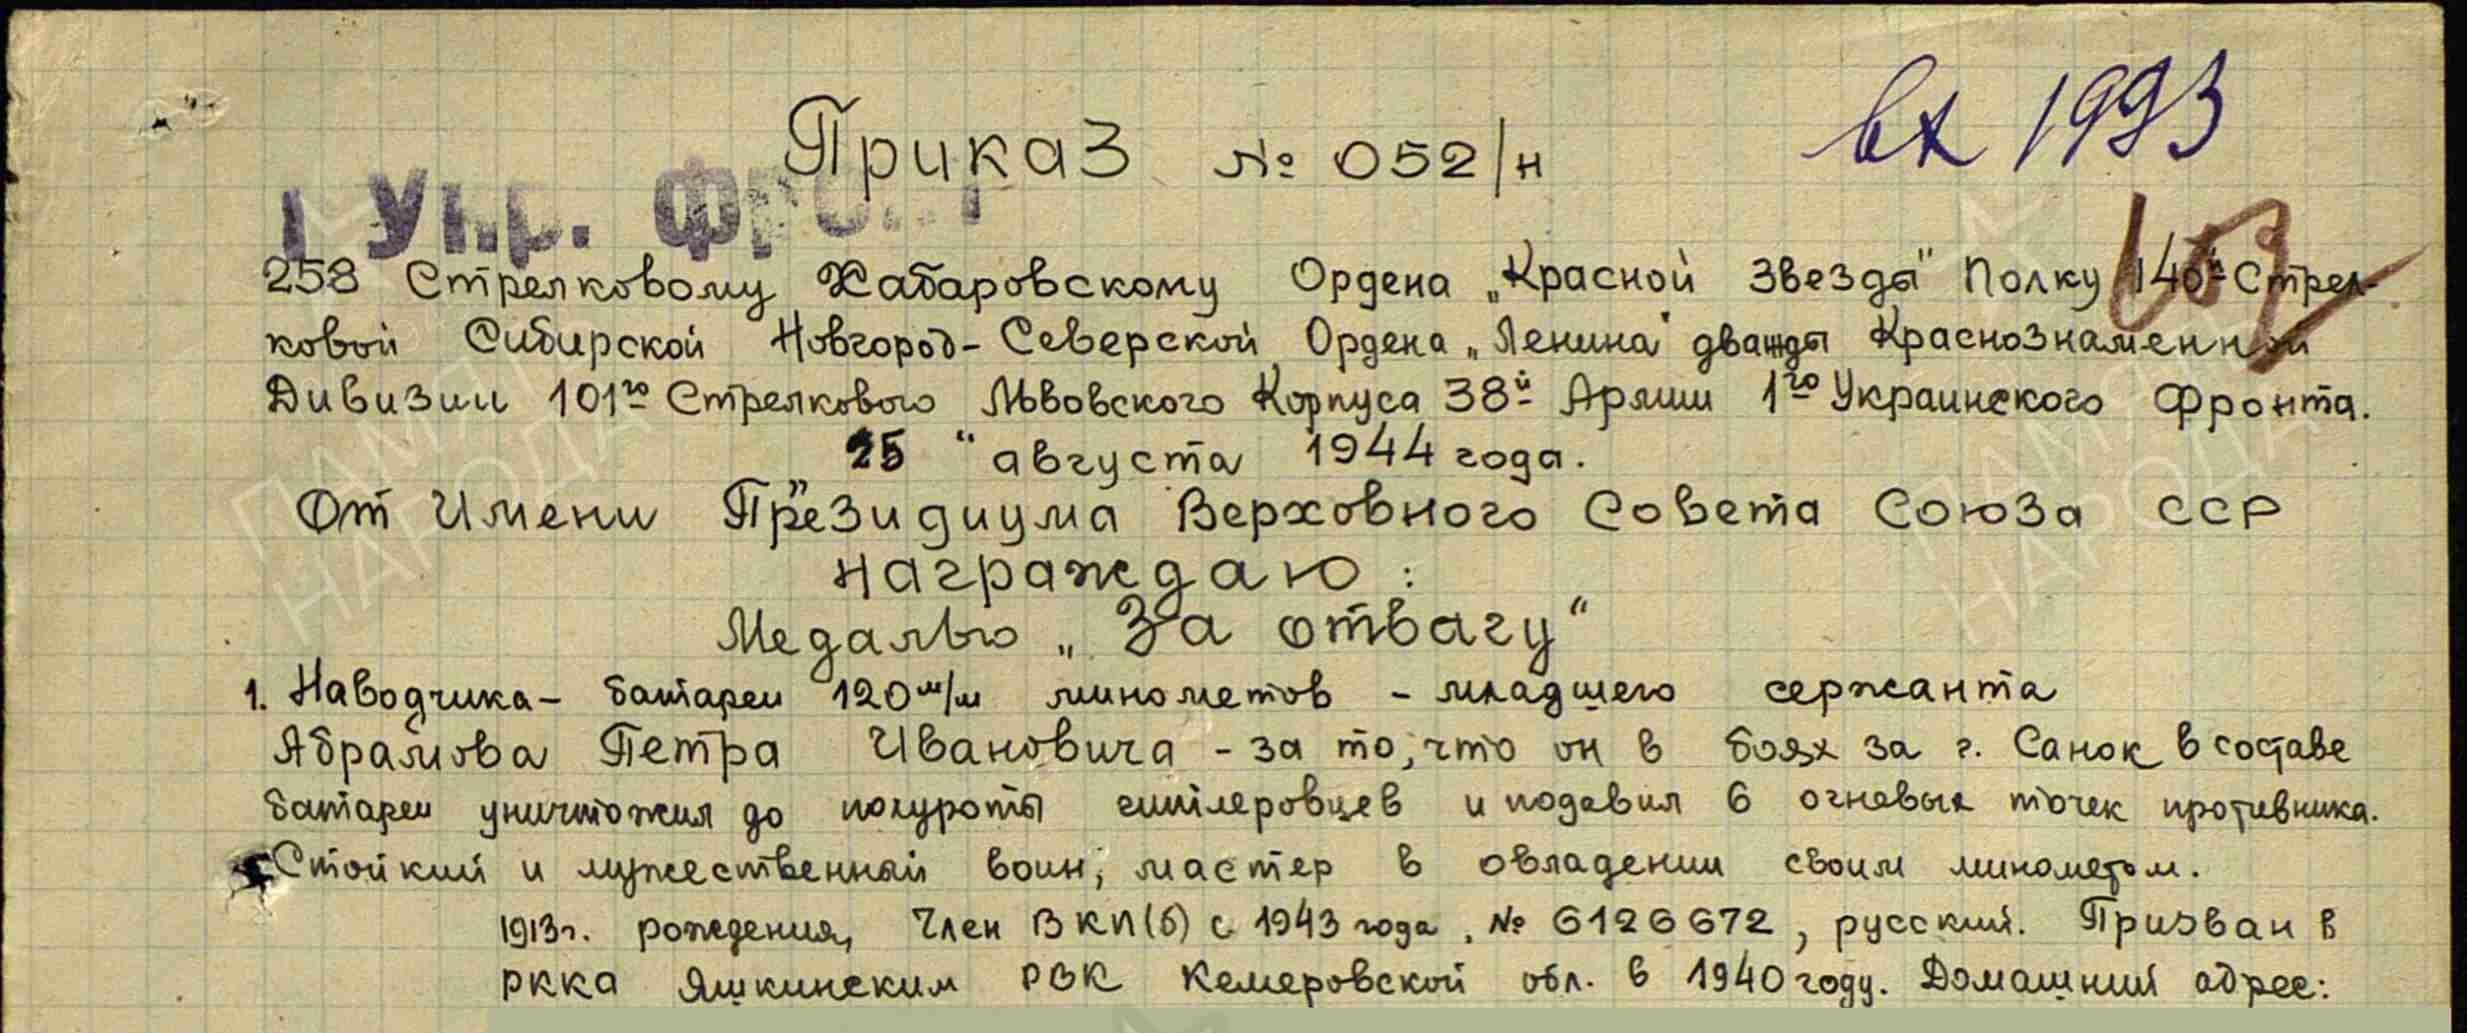 вх 1993
Приказ № 052/н
1 Укр. фронт
258 Стрелковому Хабаровскому Ордена „Красной Звезды" Полку 140й Стрел-
ковой Сибирской Новгород-Северской Ордена „Ленина" дважды Краснознаменной
Дивизии 101го Стрелкового Львовского Корпуса 38й Армии 1го Украинского Фронта.
25 " августа 1944 года.
От Имени Президиума Верховного Совета Союза ССР
награждаю:
Медалью „За отвагу"
1. Наводчика - батареи 120 м/м минометов - младшего сержанта
Абрамова Петра Ивановича - за то, что он в боях за г. Санок в составе
батареи уничтожил до полуроты гитлеровцев и подавил 6 огневых точек противника.
Стойкий и мужественный воин, мастер в овладении своим минометом.
1913г. рождения, Член ВКП(б) с 1943 года, № 6126672, русский. Призван в
РККА Яшкинским РВК Кемеровской обл. в 1940 году. Домашний адрес:
ПАМЯТЬ
НАРОДА
ПАМЯТЬ
НАРОДА